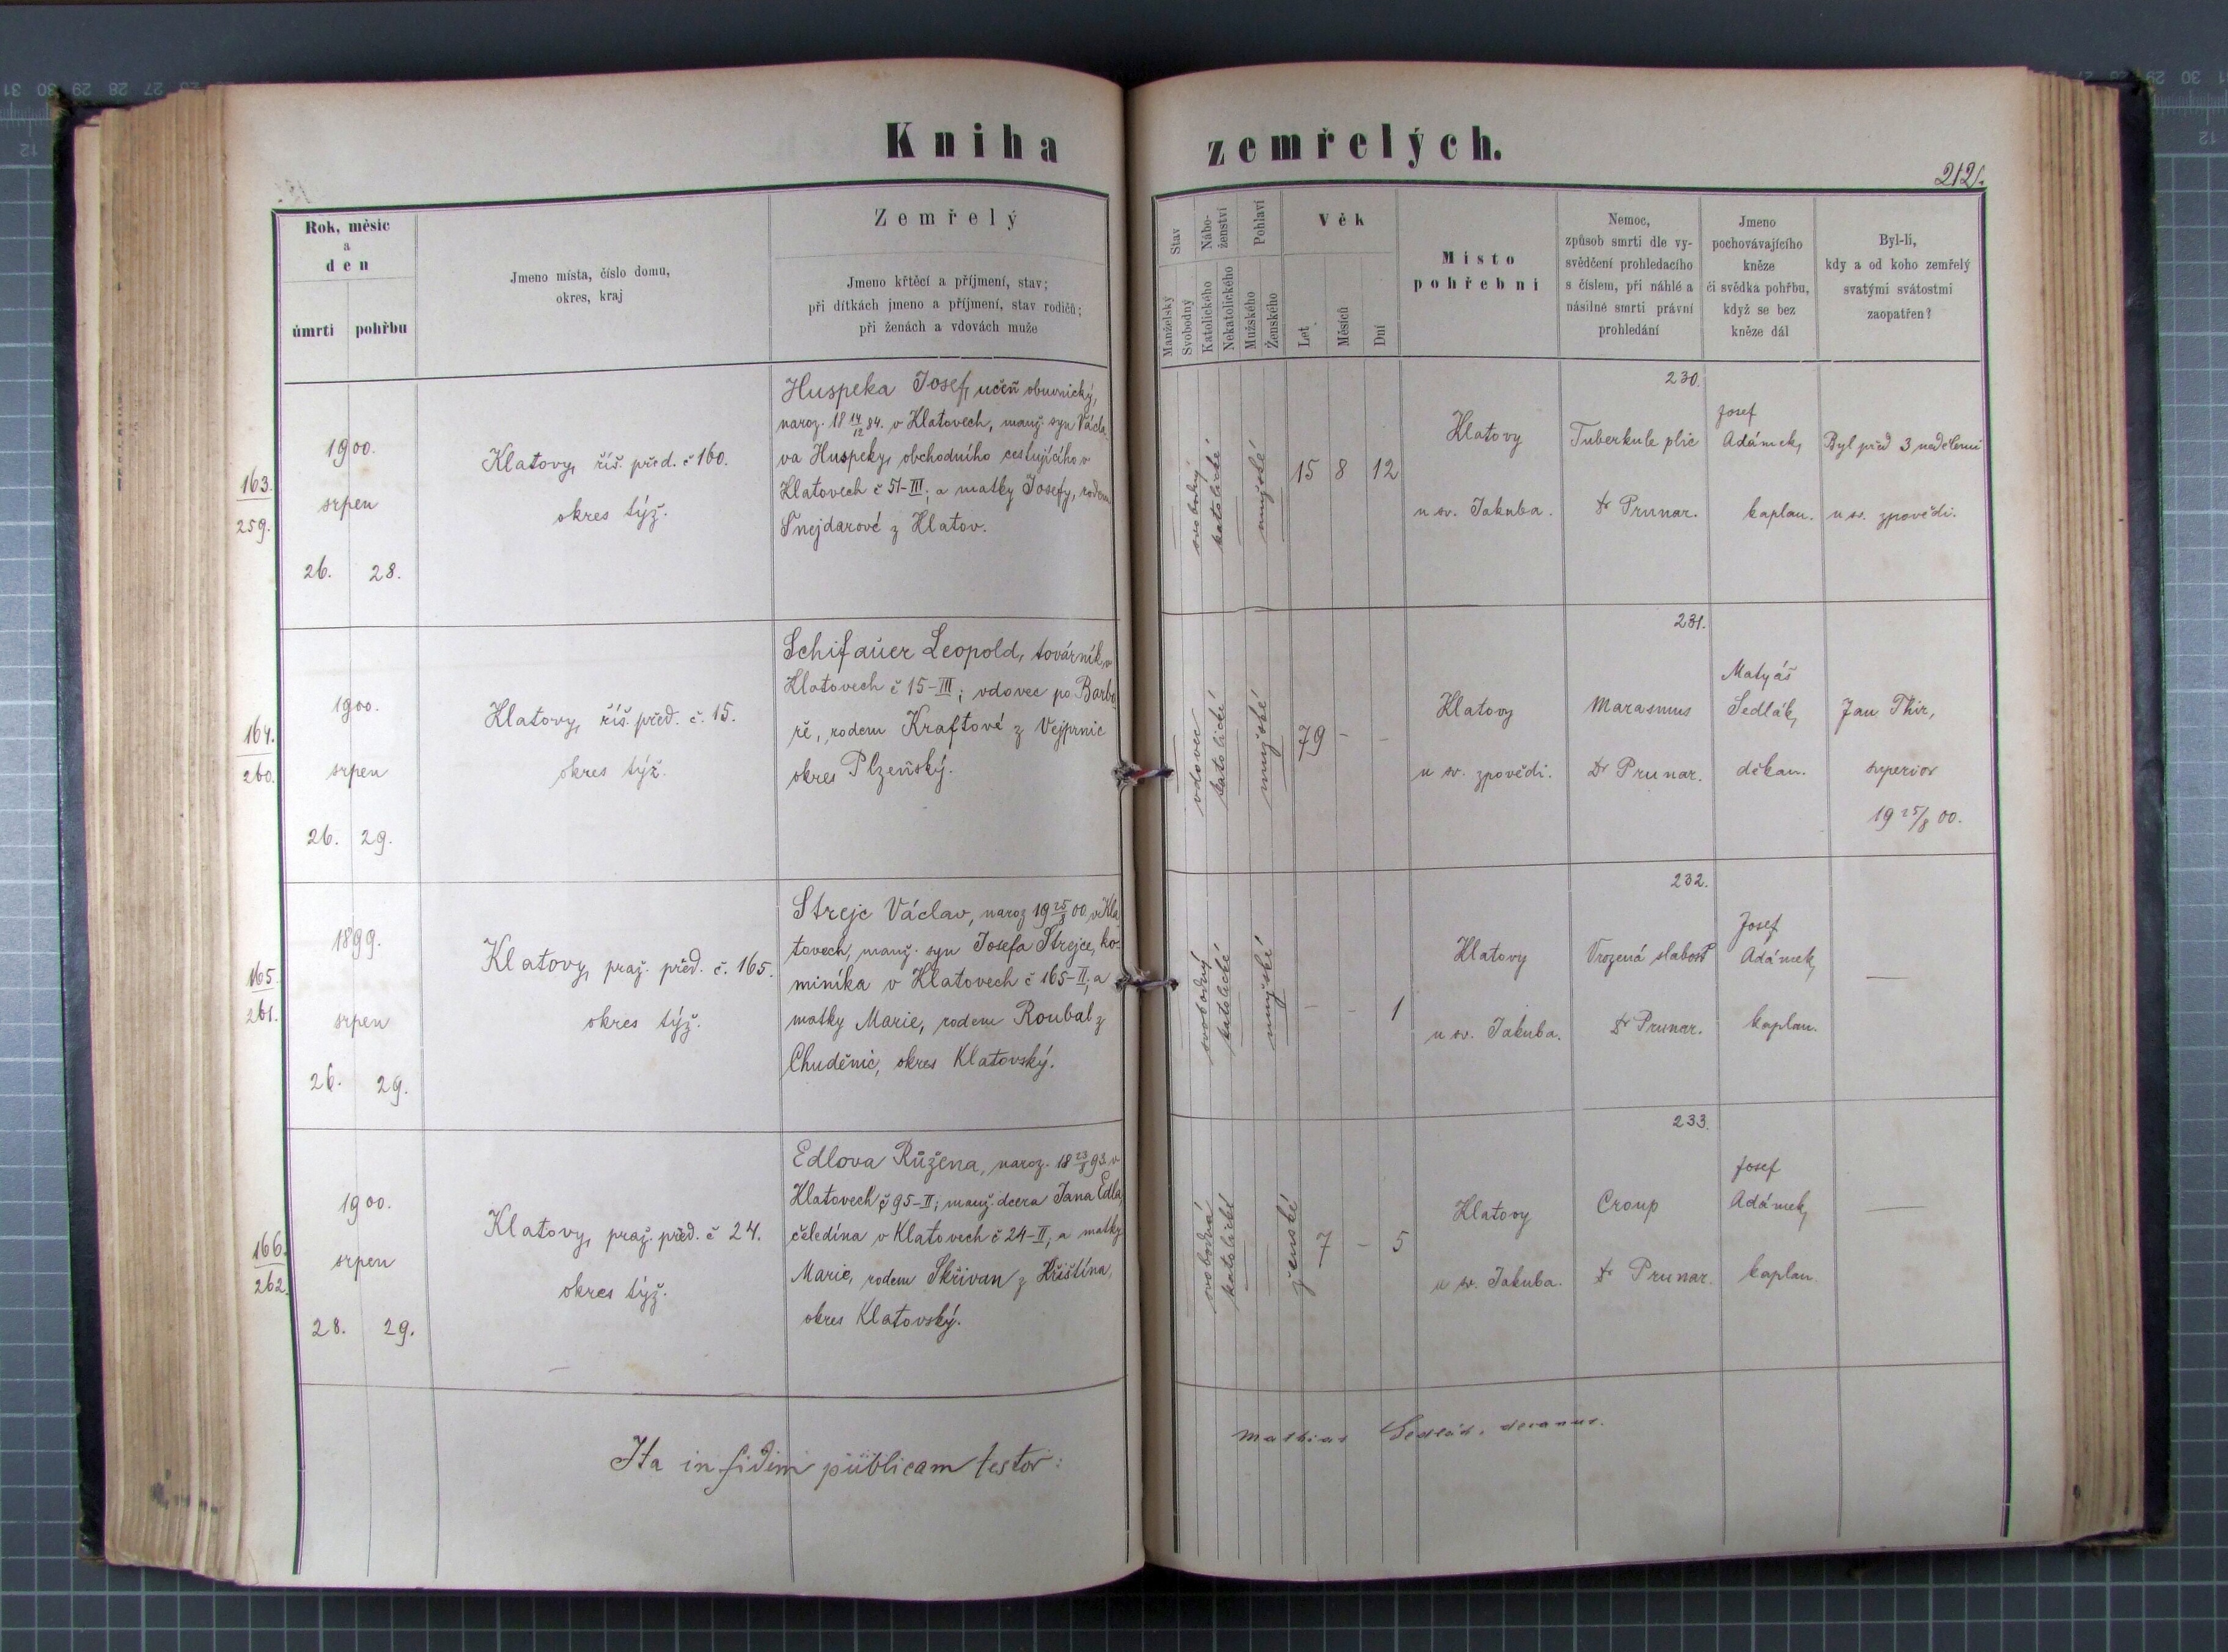 Kniha zemřelých.
212.
Rok, měsíc
a
den
úmrtí pohřbu
Jmeno místa, číslo domu,
okres, kraj
Zemřelý
Jmeno křtěcí a příjmení, stav;
při dítkách jmeno a příjmení, stav rodičů;
při ženách a vdovách muže
Stav
Manželský
Svobodný
Nábo-
ženství
Katolického
Nekatolického
Pohlaví
Mužského
Ženského
Věk
Let
Měsíců
Dní
Místo
pohřební
Nemoc,
způsob smrti dle vy-
svědčení prohledacího
s číslem, při náhlé a
násilné smrti právní
prohledání
Jmeno
pochovávajícího
kněze
či svědka pohřbu,
když se bez
kněze dál
Byl-li,
kdy a od koho zemřelý
svatými svátostmi
zaopatřen?
163.
259.
1900.
srpen
26. 28.
Klatovy, říš. před. č 160.
okres týž.
Huspeka Josef, učeň obuvnický,
naroz. 18 14/12 84. v Klatovech, manž. syn Václa-
va Huspeky, obchodního cestujícího v
Klatovech č 51-III; a matky Josefy, rodem
Šnejdarové z Klatov.
svobodný
katolické
mužské
15 8 12
Klatovy
u sv. Jakuba.
230.
Tuberkule plic
Dr Prunar.
Josef
Adámek,
kaplan.
Byl před 3 nedělemi
u sv. zpovědi.
164.
260.
1900.
srpen
26. 29.
Klatovy, říš. před. č. 15.
okres týž.
Schifauer Leopold, továrník v
Klatovech č 15-III; vdovec po Barbo-
ře, rodem Kraftové z Vejprnic
okres Plzeňský.
vdovec
katolické
mužské
79 - -
Klatovy
u sv. zpovědi.
231.
Marasmus
Dr Prunar.
Matyáš
Sedlák,
děkan.
Jan Thir,
superior
19 25/8 00.
165.
261.
1899.
srpen
26. 29.
Klatovy, praž. před. č. 165.
okres týž.
Strejc Václav, naroz 19 25/8 00 v Kla-
tovech, manž. syn Josefa Strejce, ko-
miníka v Klatovech č 165-II; a
matky Marie, rodem Roubal z
Chuděnic, okres Klatovský.
svobodný
katolické
mužské
- - 1
Klatovy
u sv. Jakuba.
232.
Vrozená slabost
Dr Prunar.
Josef
Adámek,
kaplan.
—
166.
262.
1900.
srpen
28. 29.
Klatovy, praž. před. č 24.
okres týž.
Edlova Růžena, naroz. 18 23/8 93 v
Klatovech č 95-II; manž. dcera Jana Edla,
čeledína v Klatovech č 24-II, a matky
Marie, rodem Skřivan z Křištína,
okres Klatovský.
svobodná
katolické
ženské
7 - 5
Klatovy
u sv. Jakuba.
233.
Croup
Dr Prunar.
Josef
Adámek,
kaplan.
—
Ita in fidem publicam testor:
Mathias Sedlák, decanus.